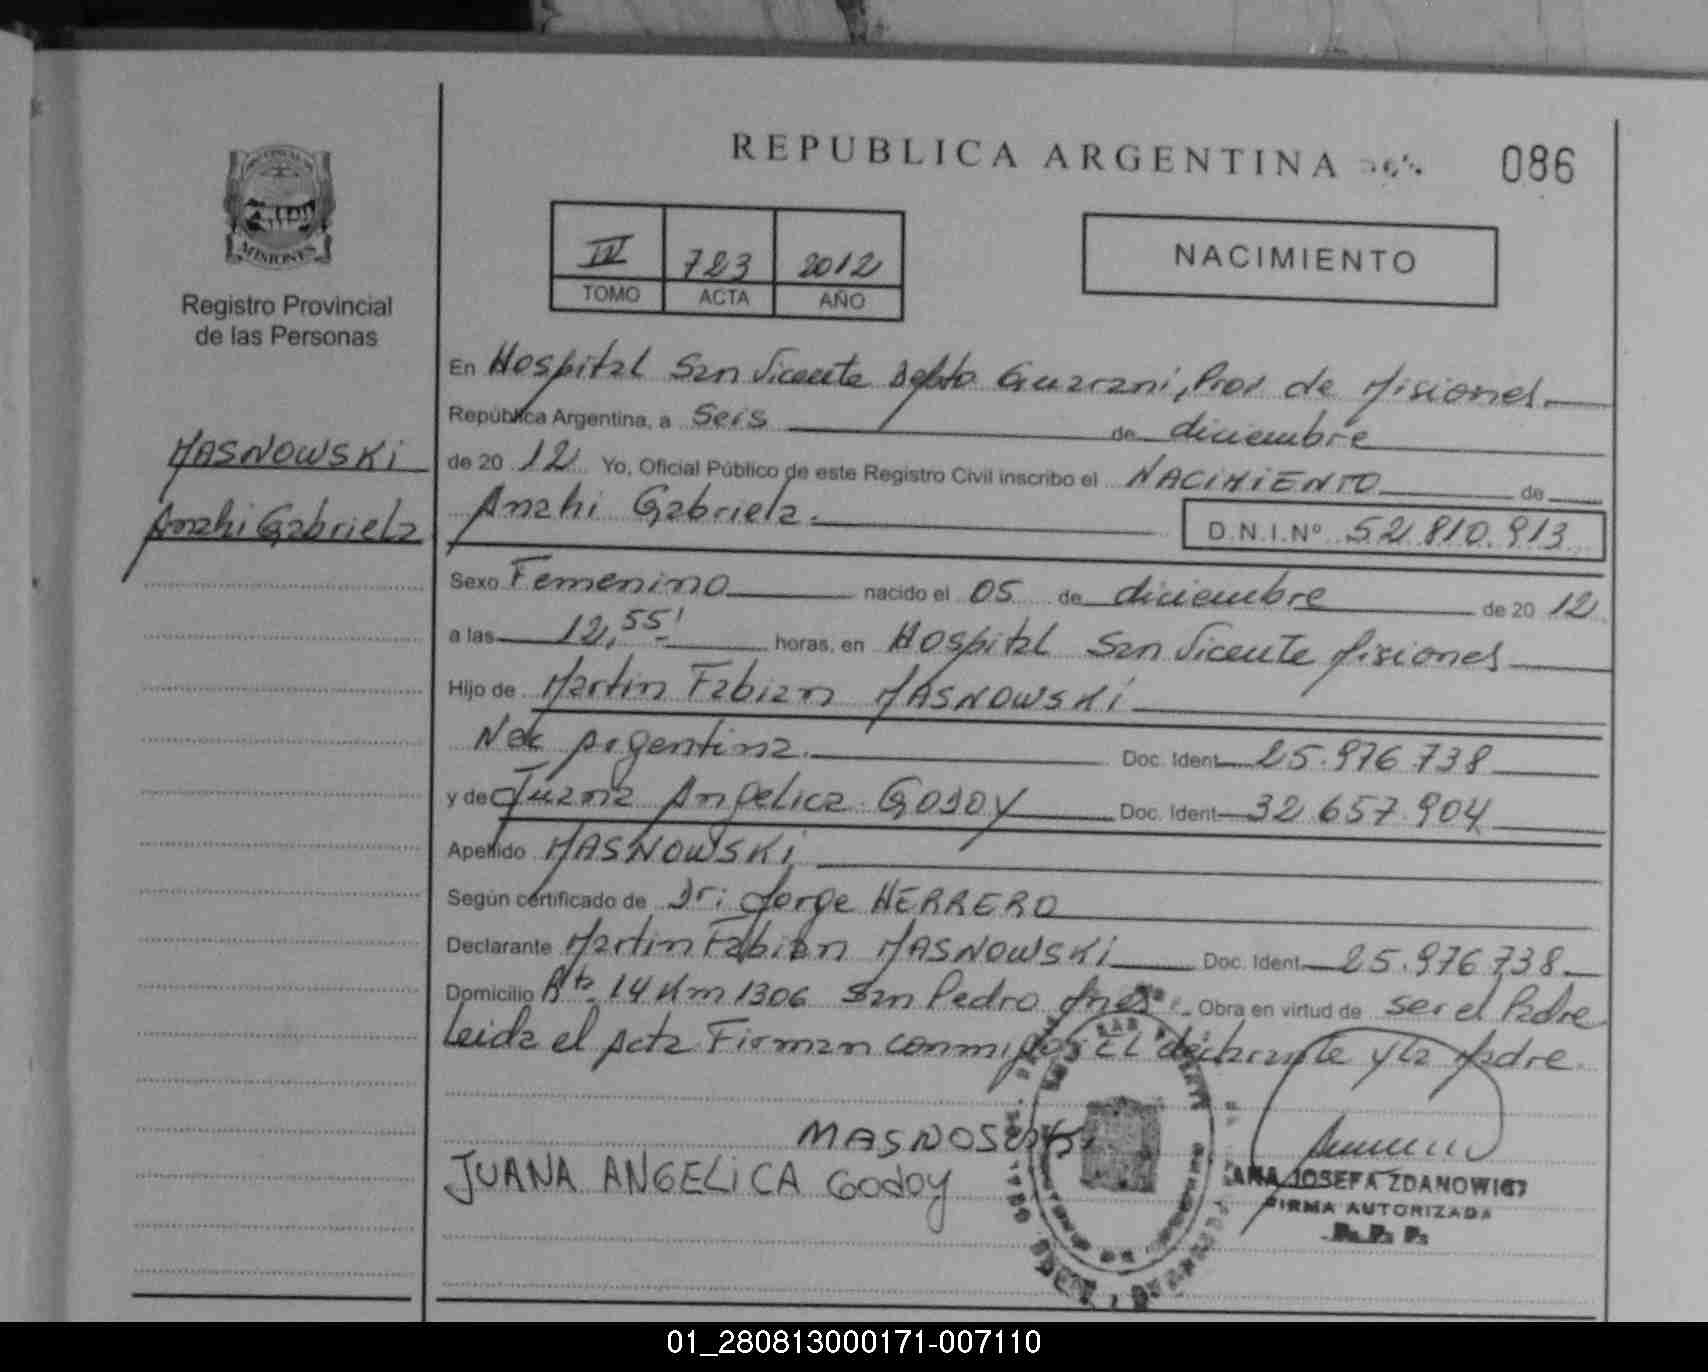 REPUBLICA ARGENTINA
086
MISIONES
Registro Provincial
de las Personas
IV 723 2012
TOMO ACTA AÑO
NACIMIENTO
MASNOWSKI
Anahi Gabriela
En Hospital San Vicente Depto Guarani, Prov. de Misiones
República Argentina, a Seis de diciembre
de 2012 Yo, Oficial Público de este Registro Civil inscribo el NACIMIENTO de
Anahi Gabriela. D.N.I.Nº 52.810.913
Sexo Femenino nacido el 05 de diciembre de 2012
a las 12,55' horas, en Hospital San Vicente Misiones
Hijo de Martin Fabian MASNOWSKI
Nac Argentina. Doc. Ident 25.976.738
y de Juana Angelica GODOY Doc. Ident 32.657.904
Apellido MASNOWSKI
Según certificado de Dr: Jorge HERRERO
Declarante Martin Fabian MASNOWSKI Doc. Ident 25.976.738
Domicilio Rta. 14 Km 1306 San Pedro Mnes. Obra en virtud de ser el Padre
Leida el Acta Firman conmigo: EL declarante y la Madre.
JUANA ANGELICA GODOY
ANA JOSEFA ZDANOWICZ
FIRMA AUTORIZADA
R. P. P.
01_280813000171-007110